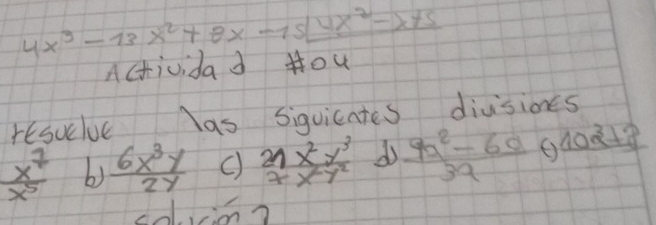 4x³ - 13x² + 8x - 15 | 4x² - x + 5
Actividad #04
resuelve las siguientes divisiones
x⁷/x⁵ b) 6x³y/2y c) 21x²y³/7xy² d) 9a² - 6a/3a
solución